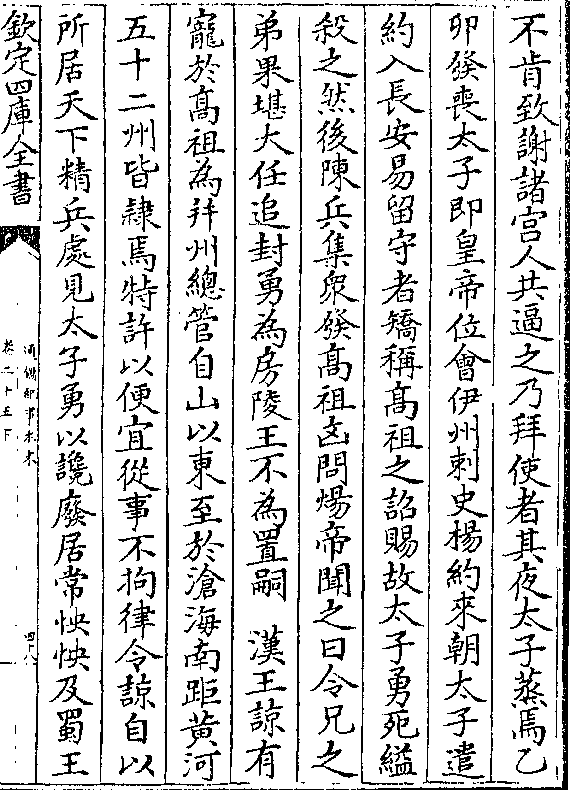 不肯致謝諸宫人共逼之乃拜使者其夜太子蒸焉乙
卯發喪太子即皇帝位㑹伊州刺史楊約來朝太子遣
約入長安易留守者矯稱髙祖之詔賜故太子勇死縊
殺之然後陳兵集衆發髙祖凶問煬帝聞之曰令兄之
弟果堪大任追封勇為房陵王不為置嗣　漢王諒有
寵於髙祖為并州總管自山以東至於滄海南距黄河
五十二州皆隷焉特許以便宜從事不拘律令諒自以
所居天下精兵處見太子勇以讒廢居常怏怏及蜀王
欽定四庫全書
通鑑紀事本末
卷二十五下
四十八